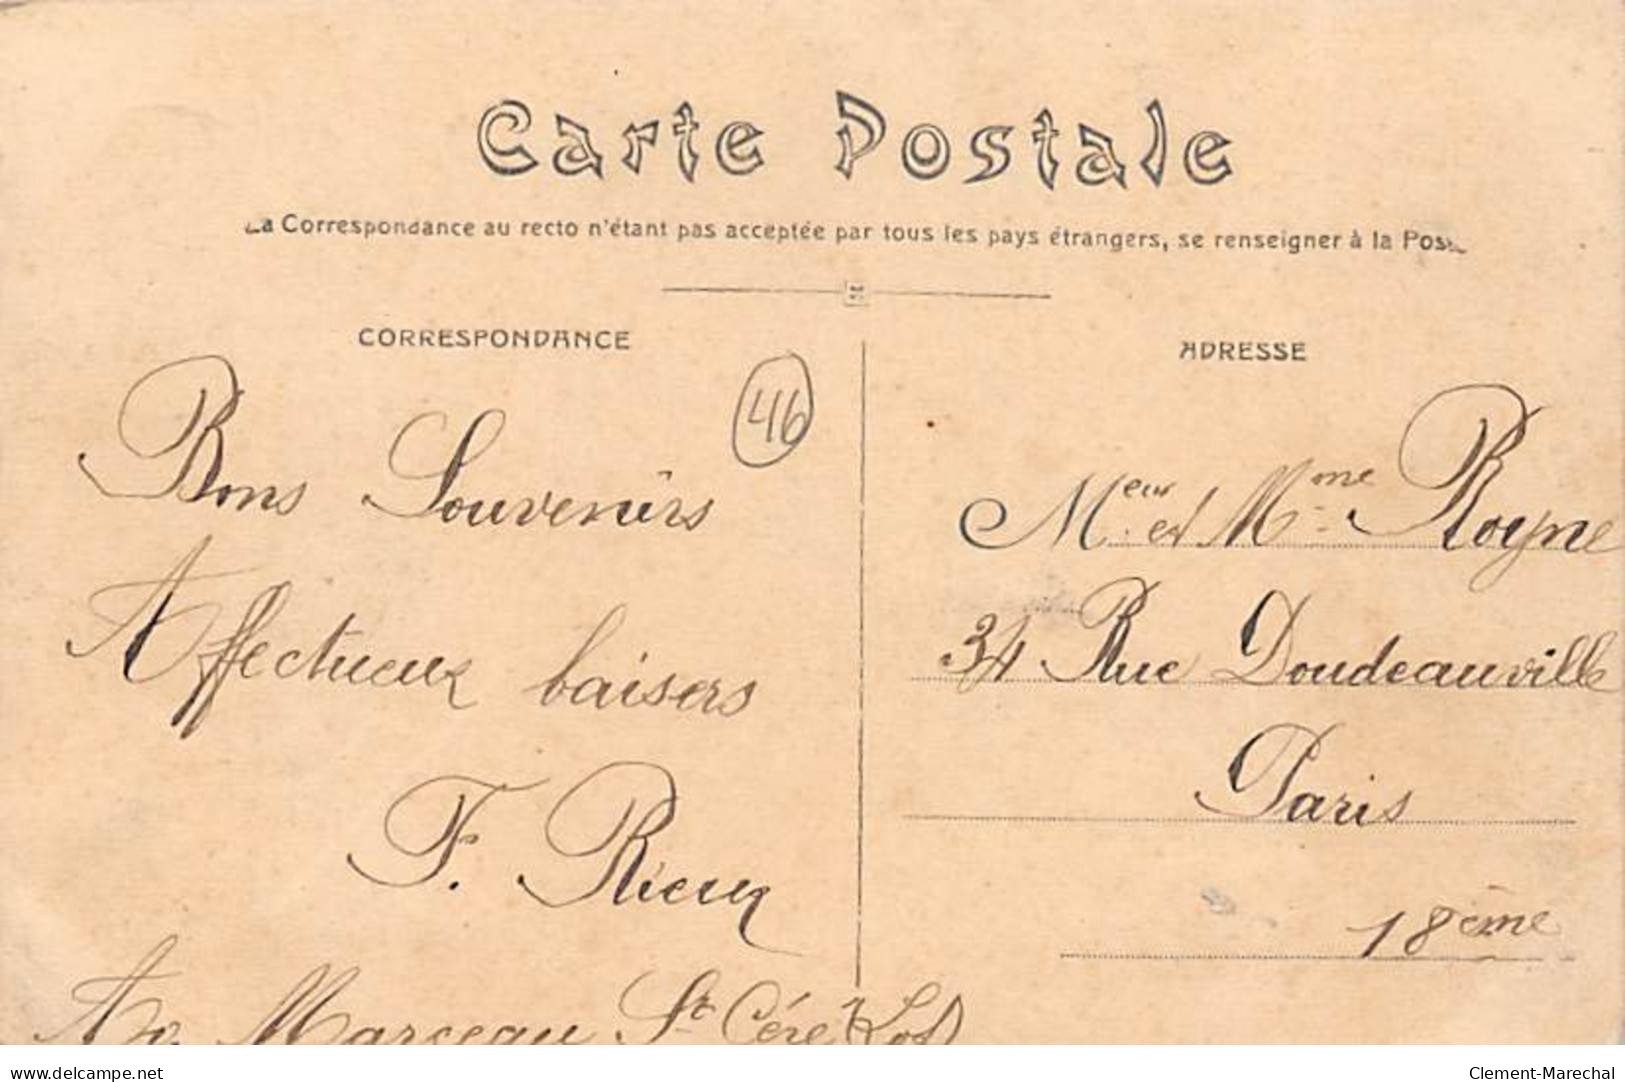 Carte Postale
La Correspondance au recto n'étant pas acceptée par tous les pays étrangers, se renseigner à la Poste
CORRESPONDANCE
46
Bons Souvenirs
Affectueux baisers
F. Rieux
Av Marceau St Céré (Lot)
ADRESSE
Meur et Mme Royne
34 Rue Doudeauville
Paris
18ème
delcampe.net
Clement-Marechal